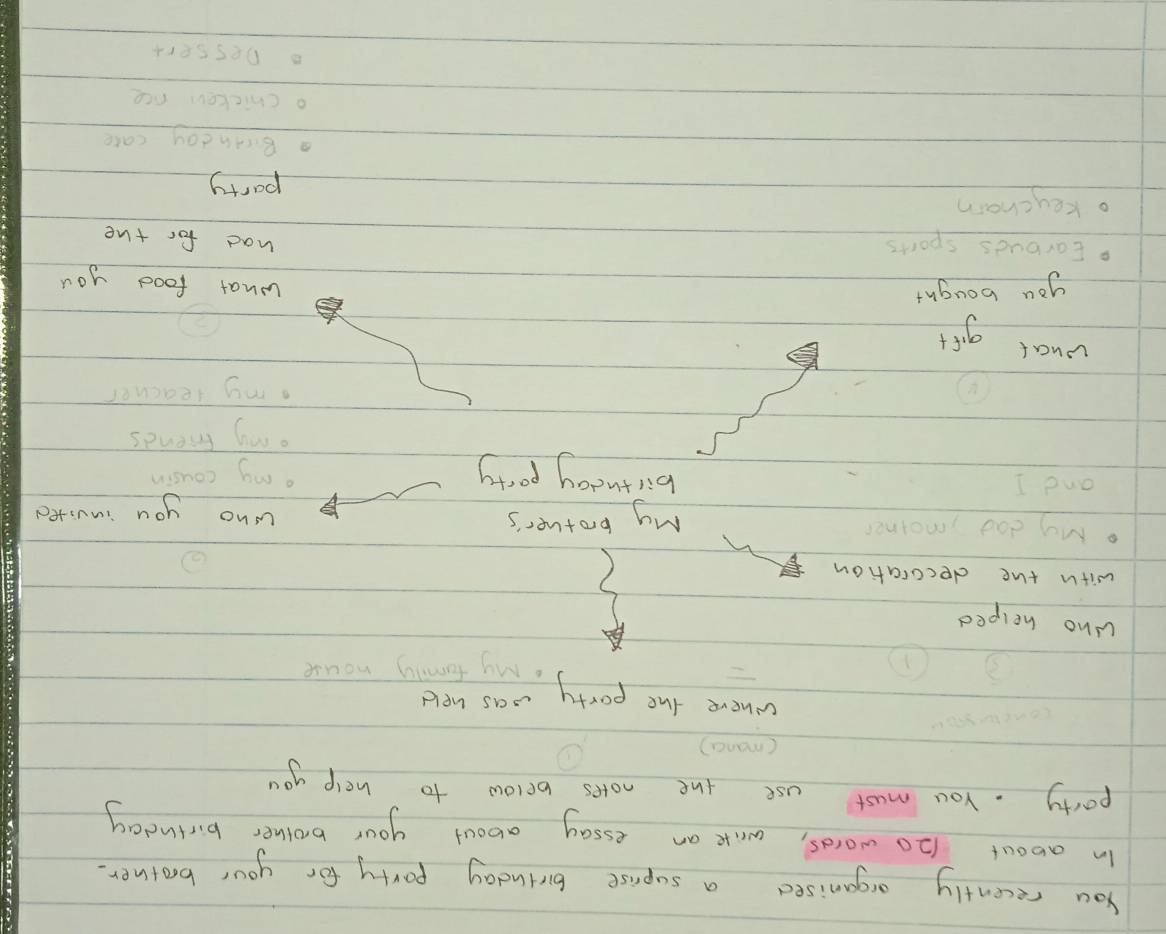 You recently organised a suprise birthday party for your brother.
In about 120 words, write an essay about your brother birthday
party. You must use the notes below to help you
(mana) 1
conclusion
Where the party was held
• My family house
3 1
Who helped
with the decoration
• My dad, mother
and I
My brother's
birthday party
Who you invited
• my cousin
• my friends
• my teacher
What gift
you bought
• Earbuds sports
• Keychain
What food you
had for the
party
• Birthday cake
• Chicken rice
• Dessert